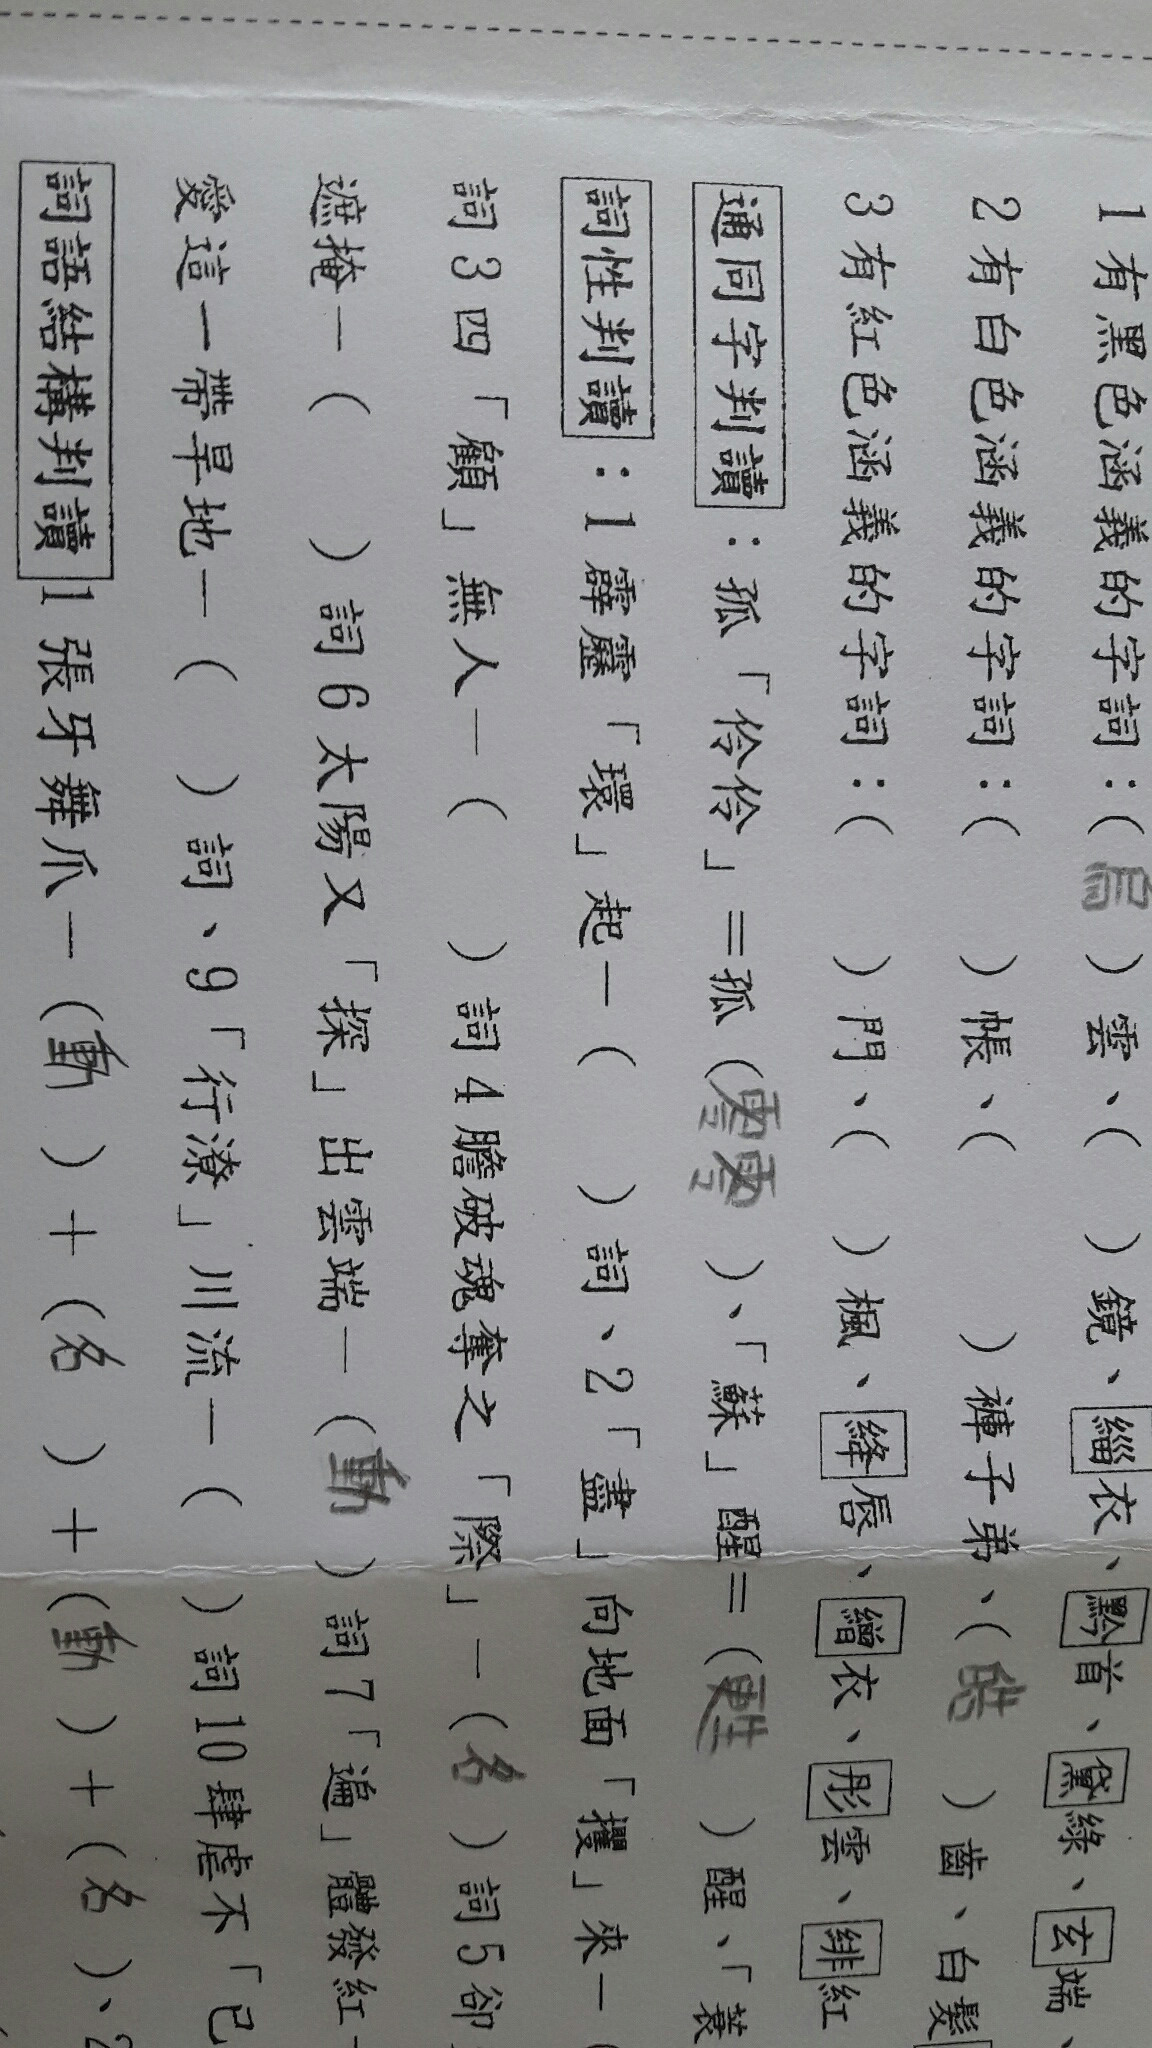 1有黑色涵義的字詞:(烏)雲、( )鏡、緇衣、黔首、黛綠、玄端、
2有白色涵義的字詞:( )帳、( )褲子弟、(皓)齒、白髮
3有紅色涵義的字詞:( )門、( )楓、絳唇、繒衣、彤雲、緋紅
通同字判讀:孤「伶伶」=孤(零零)、「蘇」醒=(甦)醒、「蓑
詞性判讀:1霹靂「環」起—( )詞、2「盡」向地面「攫」來—(
詞3四「顧」無人—( )詞4膽破魂奪之「際」—(名)詞5卻
遮掩—( )詞6太陽又「探」出雲端—(動)詞7「遍」體發紅—
愛這一帶旱地—( )詞、9「行潦」川流—( )詞10肆虐不「已
詞語結構判讀1張牙舞爪—(動)+(名)+(動)+(名)、2